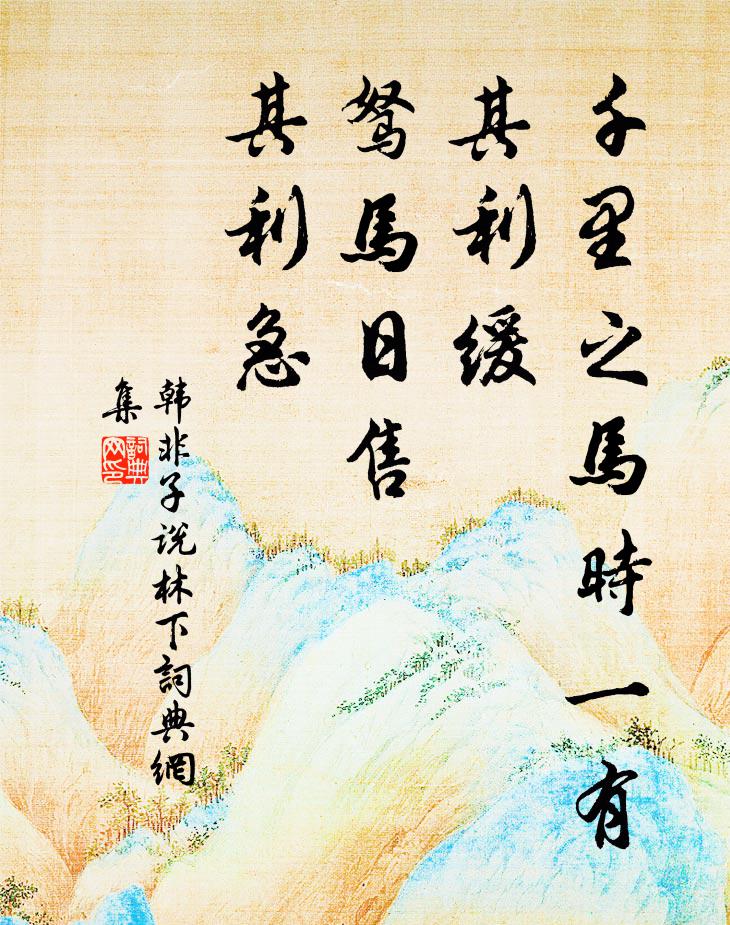 千里之馬時一有
其利緩
駑馬日售
其利急
韩非子说林下詞典網
集
詞典
网印